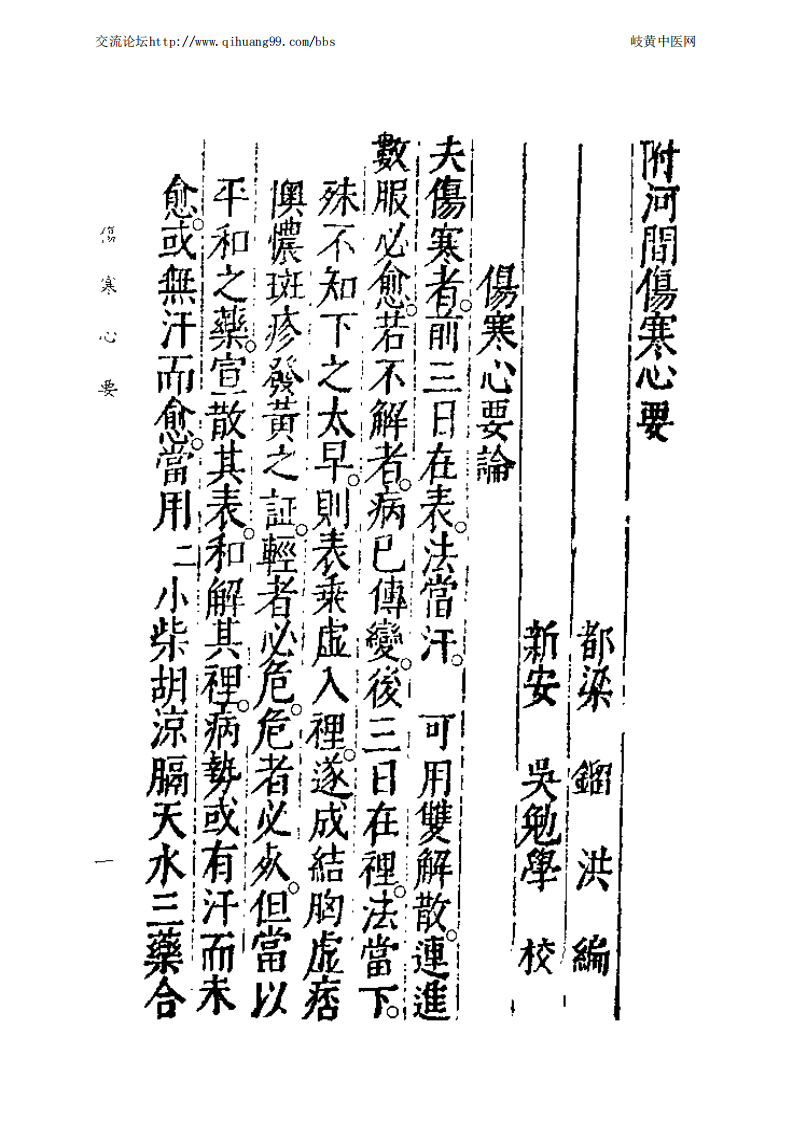 交流论坛http://www.qihuang99.com/bbs
岐黄中医网
附河間傷寒心要
都梁 鎦洪 編
新安 吳勉學 校
傷寒心要論
夫傷寒者。前三日在表。法當汗。可用雙解散。連進
數服必愈。若不解者。病已傳變。後三日在裡。法當下。
殊不知下之太早。則表乘虛入裡。遂成結胸虛痞
懊憹斑疹發黃之証。輕者必危。危者必死。但當以
平和之藥。宣散其表。和解其裡。病勢或有汗而未
愈。或無汗而愈。當用二小柴胡凉膈天水三藥合
傷寒心要
一